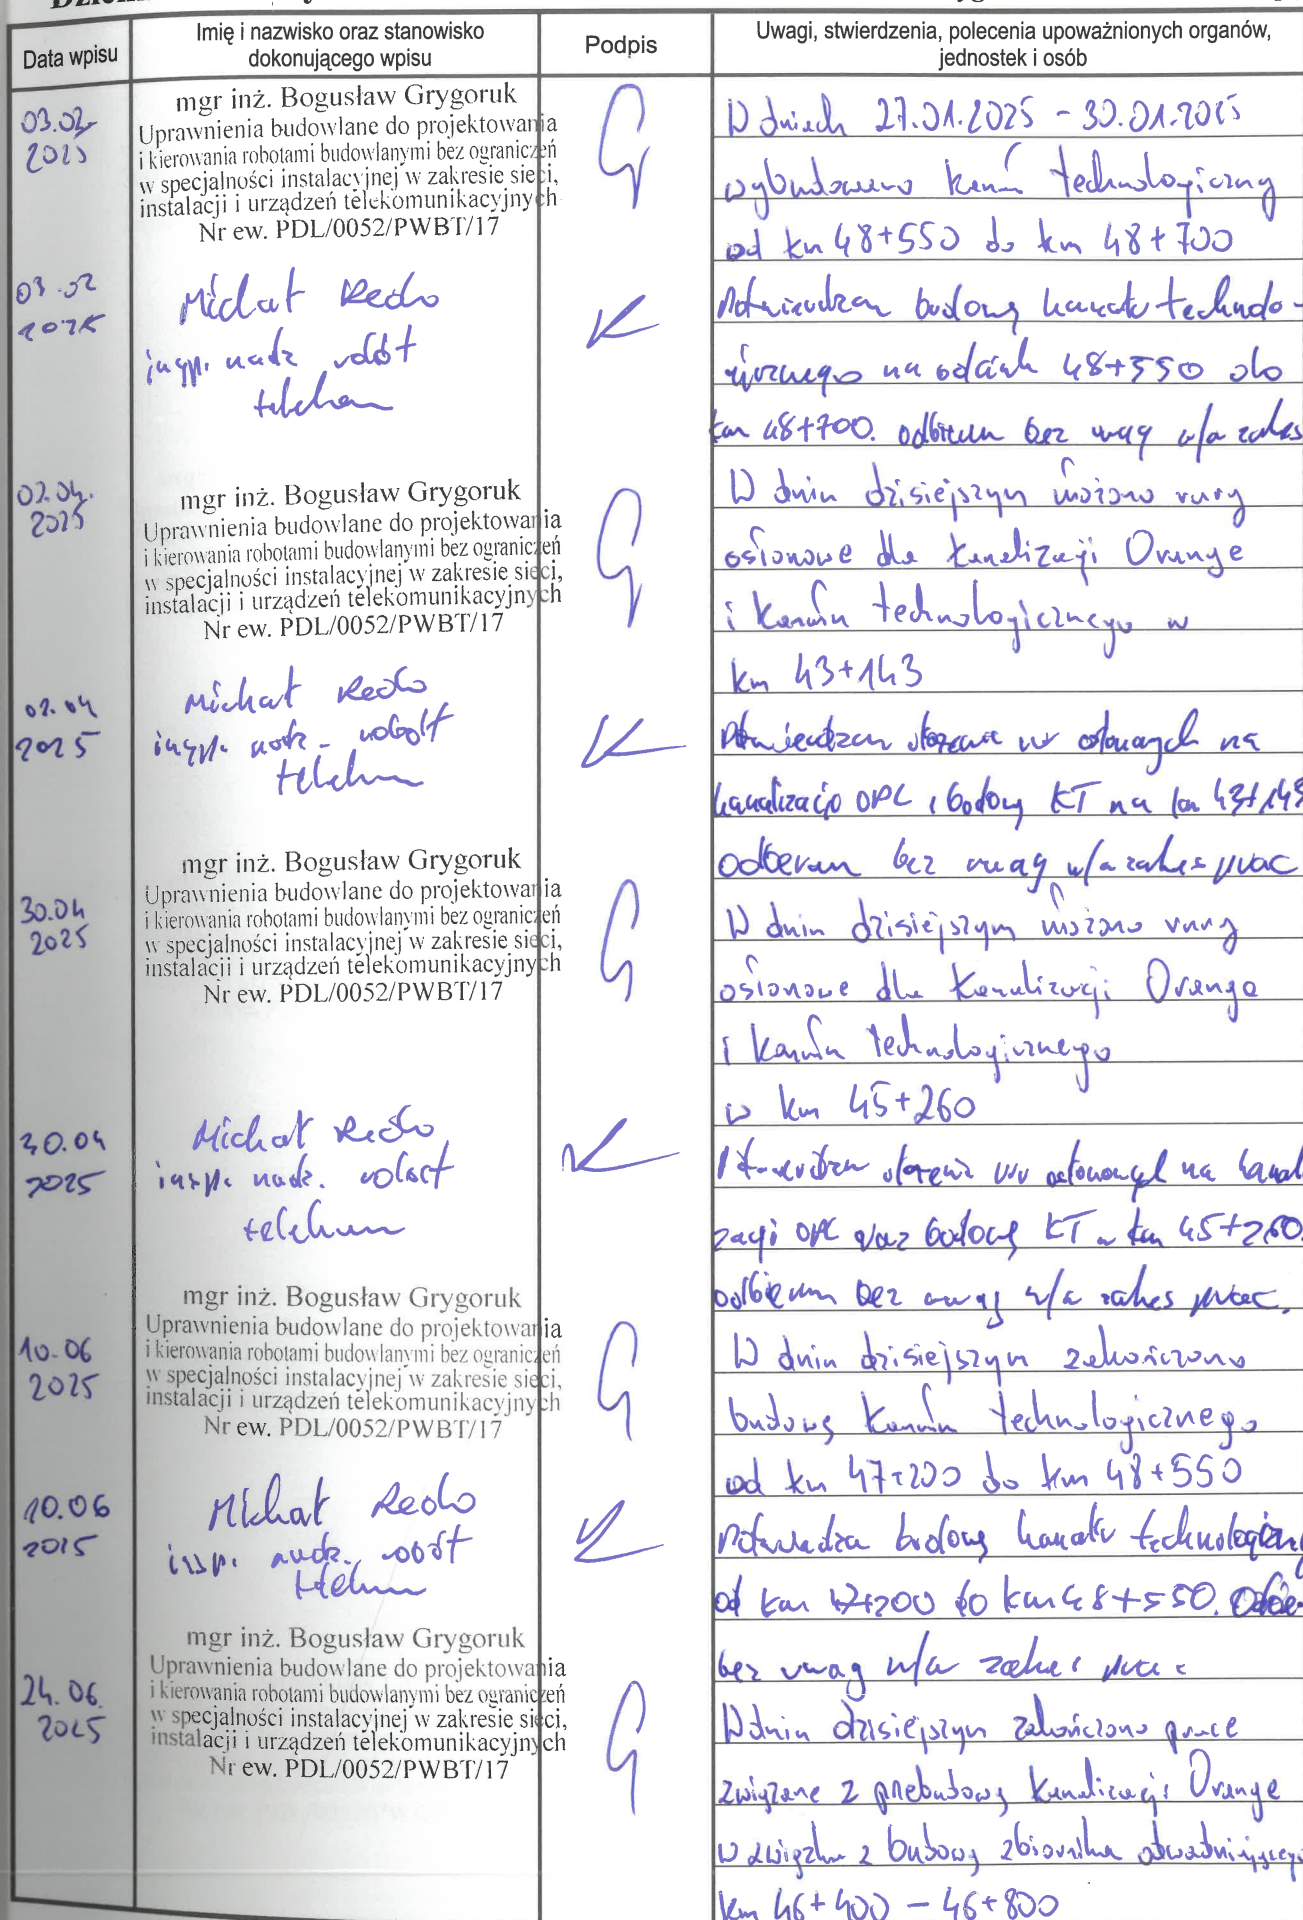 Data wpisu
Imię i nazwisko oraz stanowisko
dokonującego wpisu
Podpis
Uwagi, stwierdzenia, polecenia upoważnionych organów,
jednostek i osób
03.02.
2025
mgr inż. Bogusław Grygoruk
Uprawnienia budowlane do projektowania
i kierowania robotami budowlanymi bez ograniczeń
w specjalności instalacyjnej w zakresie sieci,
instalacji i urządzeń telekomunikacyjnych
Nr ew. PDL/0052/PWBT/17
W dniach 27.01.2025 - 30.01.2025
wybudowano kanał technologiczny
od km 48+550 do km 48+700
03.02
2025
Michał Rećko
insp. nadz. robót
telekom
Potwierdzam budowę kanału techno-
gicznego na odcinku 48+550 do
km 48+700. odbieram bez uwag w/w zakres
02.04.
2025
mgr inż. Bogusław Grygoruk
Uprawnienia budowlane do projektowania
i kierowania robotami budowlanymi bez ograniczeń
w specjalności instalacyjnej w zakresie sieci,
instalacji i urządzeń telekomunikacyjnych
Nr ew. PDL/0052/PWBT/17
W dniu dzisiejszym ułożono rury
osłonowe dla kanalizacji Orange
i kanału technologicznego w
km 43+143
02.04
2025
Michał Rećko
insp. nadz. robót
telekom
Potwierdzam ułożenie rur osłonowych na
kanalizacji OPL i budowę KT na km 43+143
odbieram bez uwag w/w zakres prac
30.04
2025
mgr inż. Bogusław Grygoruk
Uprawnienia budowlane do projektowania
i kierowania robotami budowlanymi bez ograniczeń
w specjalności instalacyjnej w zakresie sieci,
instalacji i urządzeń telekomunikacyjnych
Nr ew. PDL/0052/PWBT/17
W dniu dzisiejszym ułożono rury
osłonowe dla kanalizacji Orange
i kanału technologicznego
w km 45+260
30.04
2025
Michał Rećko
insp. nadz. robót
telekom
Potwierdzam ułożenie rur osłonowych na kanal
zacji OPL oraz budowę KT w km 45+260.
odbieram bez uwag w/w zakres prac.
10.06
2025
mgr inż. Bogusław Grygoruk
Uprawnienia budowlane do projektowania
i kierowania robotami budowlanymi bez ograniczeń
w specjalności instalacyjnej w zakresie sieci,
instalacji i urządzeń telekomunikacyjnych
Nr ew. PDL/0052/PWBT/17
W dniu dzisiejszym zakończono
budowę kanału technologicznego
od km 47+200 do km 48+550
10.06
2025
Michał Rećko
insp. nadz. robót
telekom
Potwierdza budowę kanału technologiczn
od km 47+200 do km 48+550. Odbie
bez uwag w/w zakres prac
24.06.
2025
mgr inż. Bogusław Grygoruk
Uprawnienia budowlane do projektowania
i kierowania robotami budowlanymi bez ograniczeń
w specjalności instalacyjnej w zakresie sieci,
instalacji i urządzeń telekomunikacyjnych
Nr ew. PDL/0052/PWBT/17
W dniu dzisiejszym zakończono prace
związane z przebudową kanalizacji Orange
w związku z budową zbiornika odwadniającego
km 46+400 - 46+800